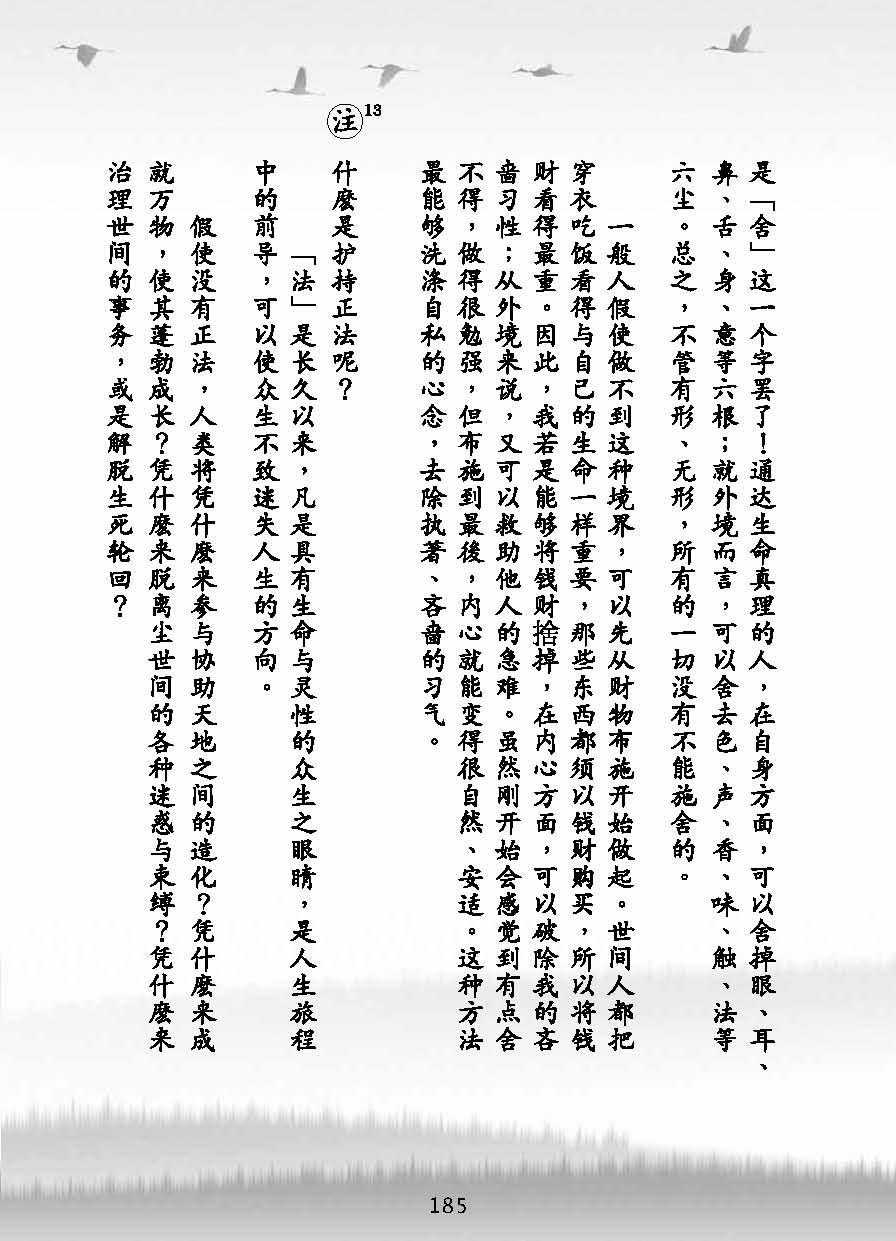 是「舍」这一个字罢了！通达生命真理的人，在自身方面，可以舍掉眼、耳、
鼻、舌、身、意等六根；就外境而言，可以舍去色、声、香、味、触、法等
六尘。总之，不管有形、无形，所有的一切没有不能施舍的。
一般人假使做不到这种境界，可以先从财物布施开始做起。世间人都把
穿衣吃饭看得与自己的生命一样重要，那些东西都须以钱财购买，所以将钱
财看得最重。因此，我若是能够将钱财捨掉，在内心方面，可以破除我的吝
啬习性；从外境来说，又可以救助他人的急难。虽然刚开始会感觉到有点舍
不得，做得很勉强，但布施到最後，内心就能变得很自然、安适。这种方法
最能够洗涤自私的心念，去除执著、吝啬的习气。
注13
什麽是护持正法呢？
「法」是长久以来，凡是具有生命与灵性的众生之眼睛，是人生旅程
中的前导，可以使众生不致迷失人生的方向。
假使没有正法，人类将凭什麽来参与协助天地之间的造化？凭什麽来成
就万物，使其蓬勃成长？凭什麽来脱离尘世间的各种迷惑与束缚？凭什麽来
治理世间的事务，或是解脱生死轮回？
185